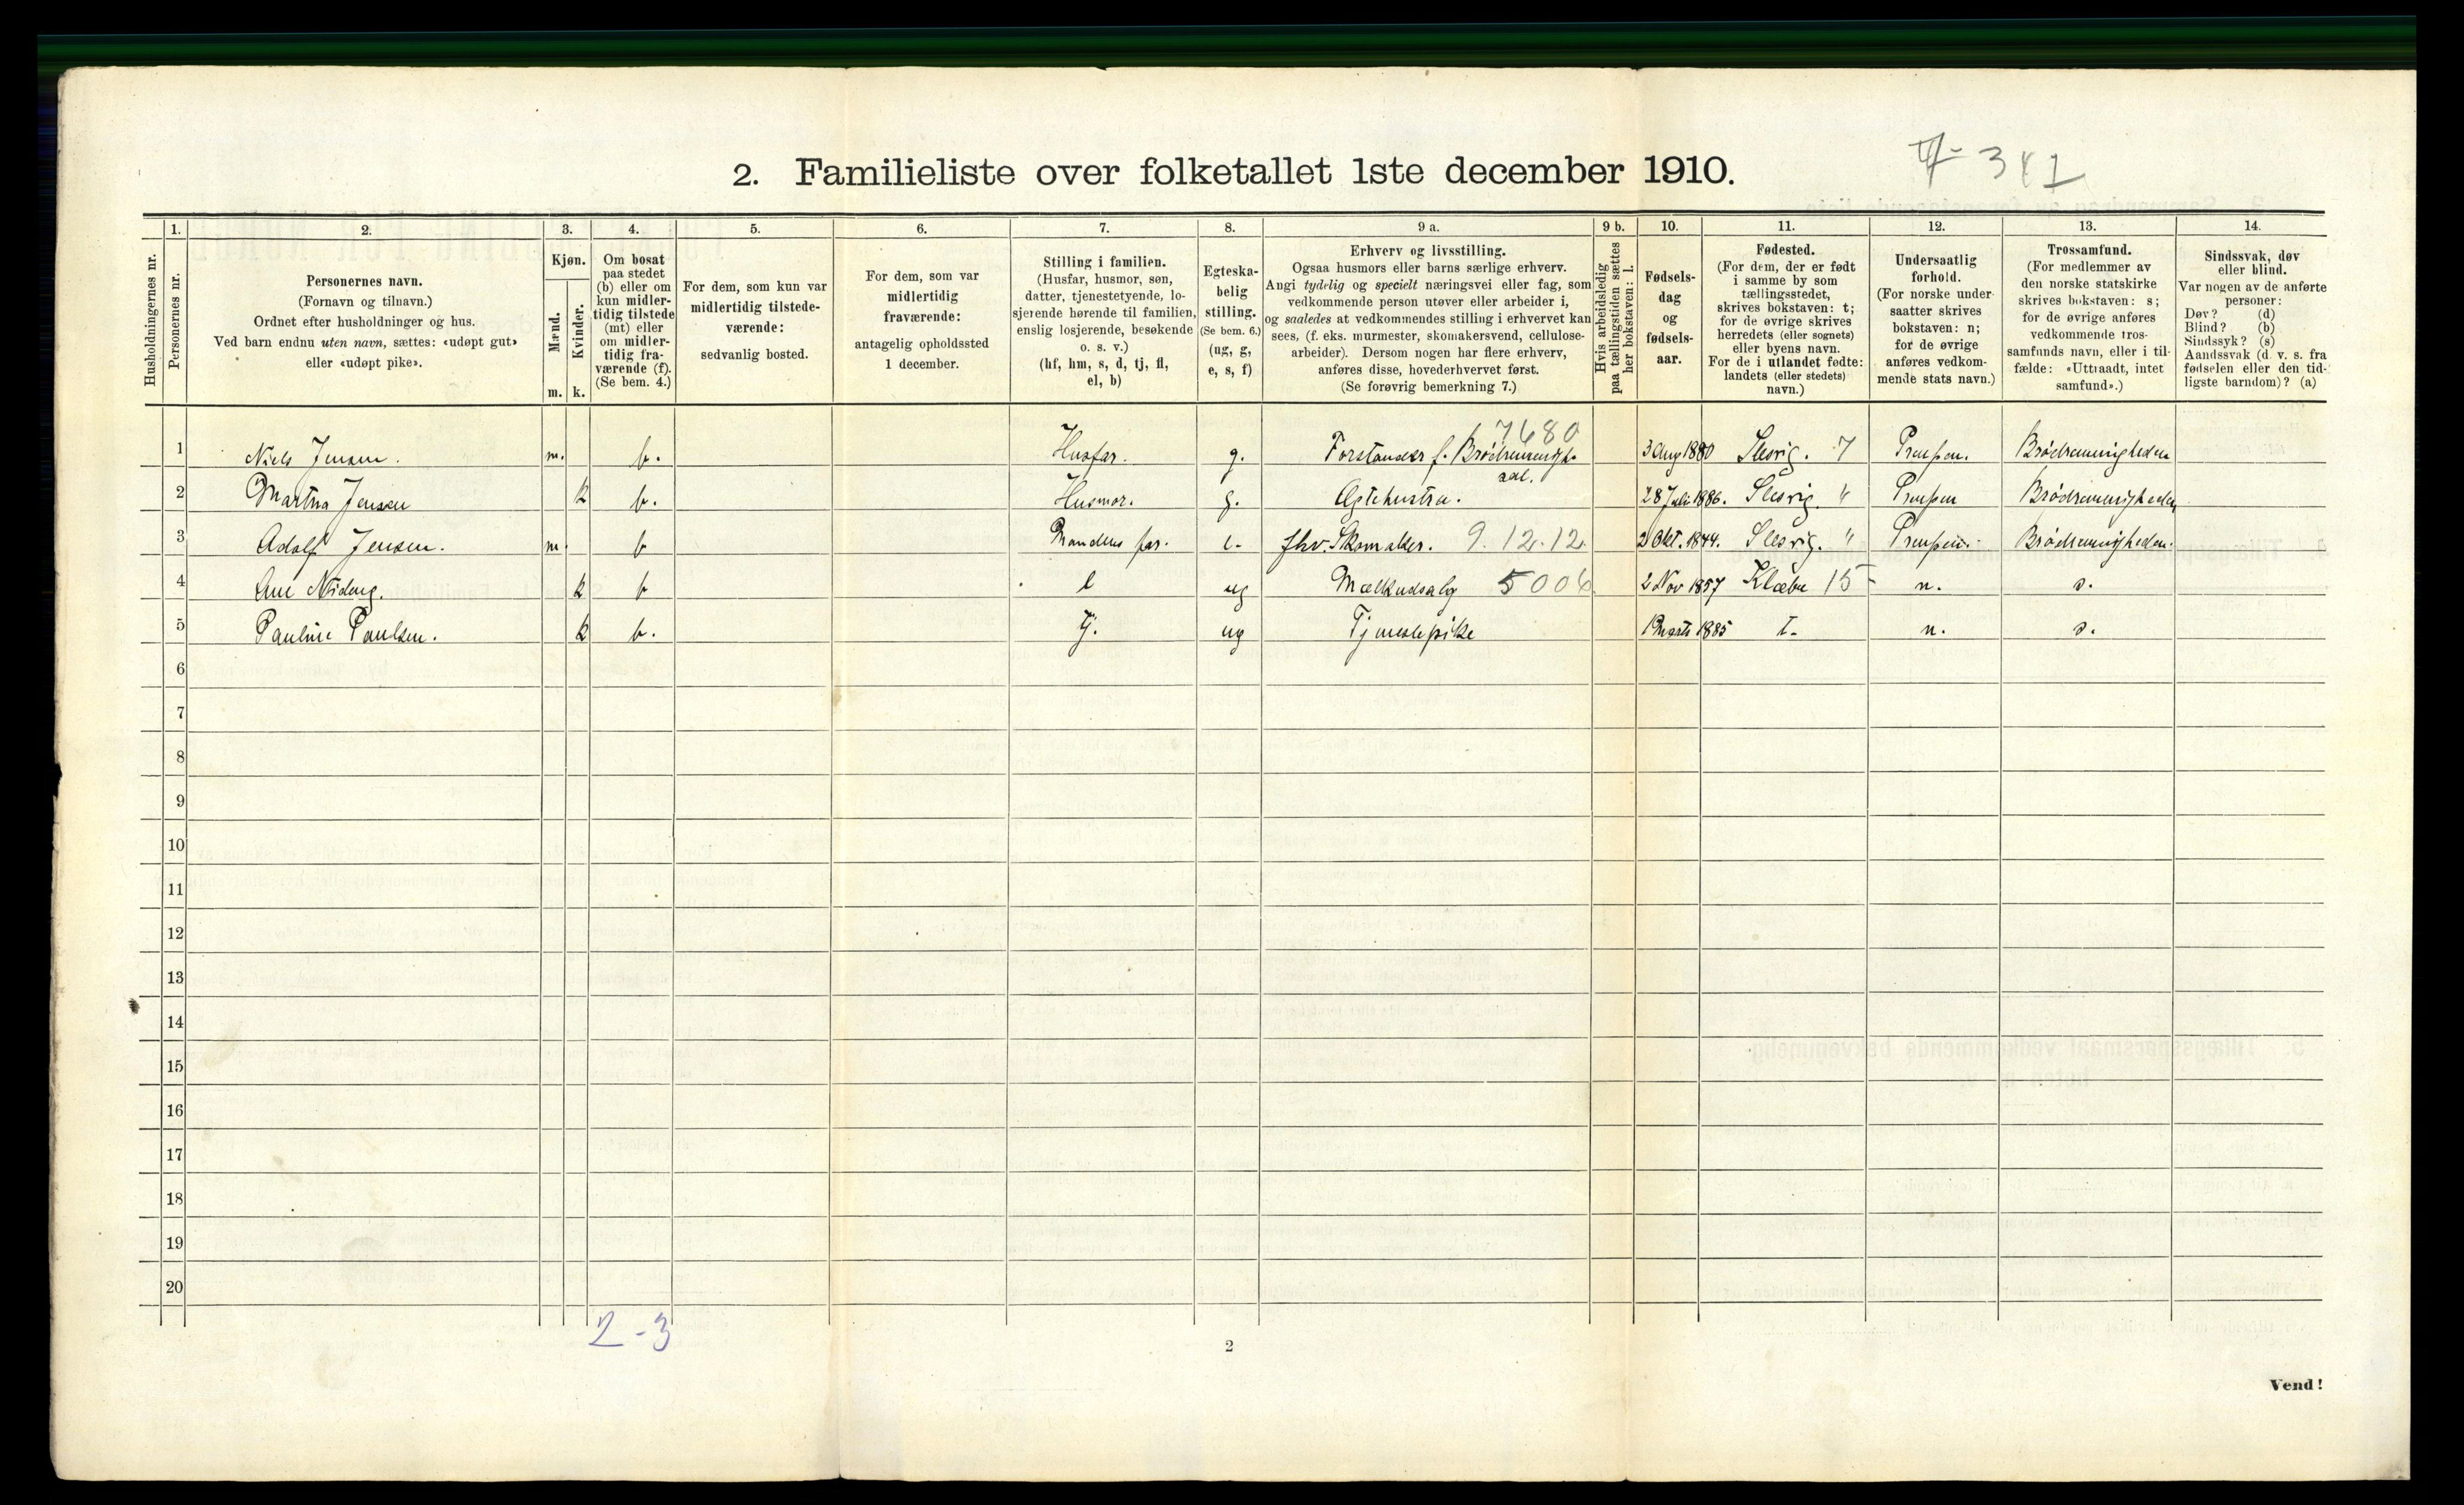 2. Familieliste over folketallet 1ste december 1910.
341
Husholdningernes nr.
1.
Personernes nr.
2.
Personernes navn.
(Fornavn og tilnavn.)
Ordnet efter husholdninger og hus.
Ved barn endnu uten navn, sættes: «udøpt gut»
eller «udøpt pike».
3.
Kjøn.
Mænd.
m.
Kvinder.
k.
4.
Om bosat
paa stedet
(b) eller om
kun midler-
tidig tilstede
(mt) eller
om midler-
tidig fra-
værende (f).
(Se bem. 4.)
5.
For dem, som kun var
midlertidig tilstede-
værende:
sedvanlig bosted.
6.
For dem, som var
midlertidig
fraværende:
antagelig opholdssted
1 december.
7.
Stilling i familien.
(Husfar, husmor, søn,
datter, tjenestetyende, lo-
sjerende hørende til familien,
enslig losjerende, besøkende
o. s. v.)
(hf, hm, s, d, tj, fl,
el, b)
8.
Egteska-
belig
stilling.
(Se bem. 6.)
(ug, g,
e, s, f)
9 a.
Erhverv og livsstilling.
Ogsaa husmors eller barns særlige erhverv.
Angi tydelig og specielt næringsvei eller fag, som
vedkommende person utøver eller arbeider i,
og saaledes at vedkommendes stilling i erhvervet kan
sees, (f. eks. murmester, skomakersvend, cellulose-
arbeider). Dersom nogen har flere erhverv,
anføres disse, hovederhvervet først.
(Se forøvrig bemerkning 7.)
9 b.
Hvis arbeidsledig
paa tællingstiden sættes
her bokstaven: l.
10.
Fødsels-
dag
og
fødsels-
aar.
11.
Fødested.
(For dem, der er født
i samme by som
tællingsstedet,
skrives bokstaven: t;
for de øvrige skrives
herredets (eller sognets)
eller byens navn.
For de i utlandet fødte:
landets (eller stedets)
navn.)
12.
Undersaatlig
forhold.
(For norske under-
saatter skrives
bokstaven: n;
for de øvrige
anføres vedkom-
mende stats navn.)
13.
Trossamfund.
(For medlemmer av
den norske statskirke
skrives bokstaven: s;
for de øvrige anføres
vedkommende tros-
samfunds navn, eller i til-
fælde: «Uttraadt, intet
samfund».)
14.
Sindssvak, døv
eller blind.
Var nogen av de anførte
personer:
Døv? (d)
Blind? (b)
Sindssyk? (s)
Aandssvak (d. v. s. fra
fødselen eller den tid-
ligste barndom)? (a)
7680
1 Niels Jensen. m. b. Husfar. g. Forstander f. Brødremenigh. 3 Aug 1880 Slesvig. 7 Preussen. Brødremenigheden
sal.
2 Martha Jensen k b. Husmor. g. Ægtehustru. 28 Juli 1886. Slesvig. " Preussen Brødremenigheden
3 Adolf Jensen. m. b Mandens far. e. fhv. Skomaker. 9.12.12. 2 Okt. 1844. Slesvig. " Preussen. Brødremenigheden.
4 Ane k b l ug Mælkudsalg 5006 2 Nov 1857 Klæbu 15 n. s.
5 Pauline Paulsen. k b. tj. ug Tjenestepike 1 Marts 1885 t. n. s.
6
7
8
9
10
11
12
13
14
15
16
17
18
19
20
2-3
2
Vend!